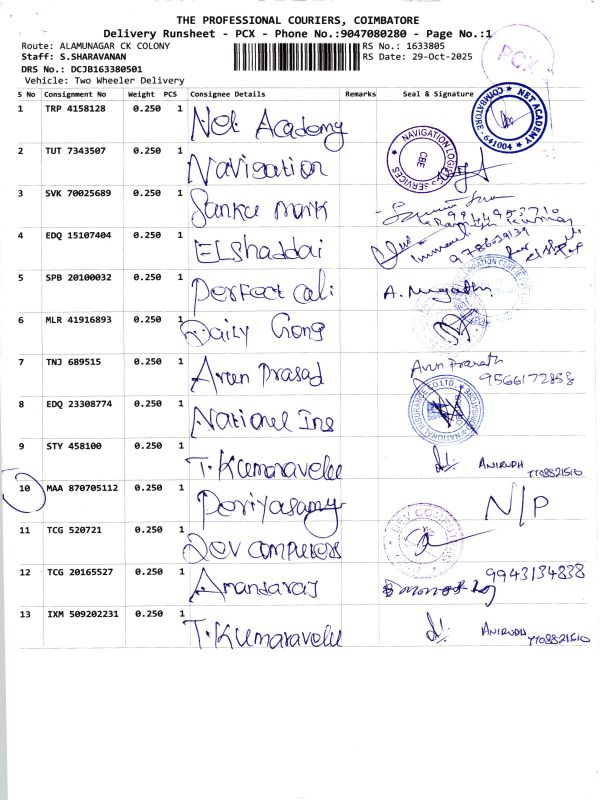 THE PROFESSIONAL COURIERS, COIMBATORE
Delivery Runsheet - PCX - Phone No.:9047080280 - Page No.:1
Route: ALAMUNAGAR CK COLONY
RS No.: 1633805
Staff: S.SHARAVANAN
RS Date: 29-Oct-2025
DRS No.: DCJB163380501
Vehicle: Two Wheeler Delivery
PCX
S No Consignment No Weight PCS Consignee Details Remarks Seal & Signature
1 TRP 4158128 0.250 1 Net Academy
NET ACADEMY COIMBATORE - 641004
2 TUT 7343507 0.250 1 Navigation
NAVIGATION LOGISTICS SERVICES CBE
3 SVK 70025689 0.250 1 Sanku mark
4 EDQ 15107404 0.250 1 ELshaddai
9786039139
5 SPB 20100032 0.250 1 Perfect Cali
6 MLR 41916893 0.250 1 Daily
7 TNJ 689515 0.250 1 Arun Prasad
9566172858
8 EDQ 23308774 0.250 1 National Ins
NATIONAL INSURANCE CO.LTD.
9 STY 458100 0.250 1 T.Kumaravelu ANIRUDH
7708821510
10 MAA 870705112 0.250 1 Periyasamy N/P
11 TCG 520721 0.250 1 Dev computers
DEV COMPUTERS
12 TCG 20165527 0.250 1 Anandaraj 9943134838
13 IXM 509202231 0.250 1 T.Kumaravelu ANIRUDH
7708821510